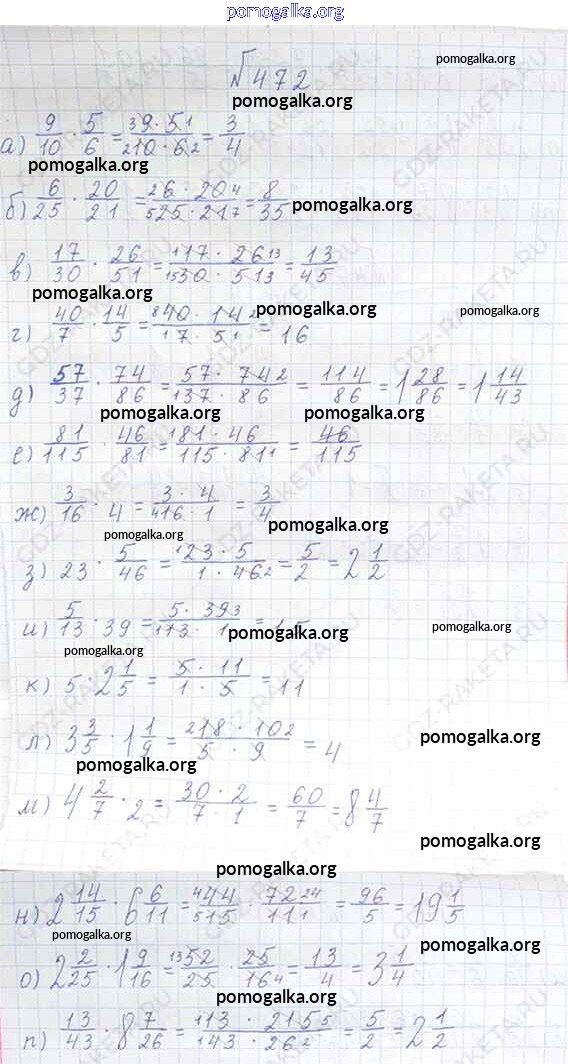 pomogalka.org
pomogalka.org
№472
pomogalka.org
а) 9/10 · 5/6 = 39·51/210·62 = 3/4
pomogalka.org
б) 6/25 · 20/21 = 26·204/525·217 = 8/35
pomogalka.org
в) 17/30 · 26/51 = 117·2613/1530·513 = 13/45
pomogalka.org
pomogalka.org
г) 40/7 · 14/5 = 840·142/17·51 = 16
pomogalka.org
д) 57/37 · 74/86 = 57·742/137·86 = 114/86 = 1 28/86 = 1 14/43
pomogalka.org
pomogalka.org
е) 81/115 · 46/81 = 181·46/115·811 = 46/115
pomogalka.org
ж) 3/16 · 4 = 3·4/416·1 = 3/4
pomogalka.org
pomogalka.org
з) 23 · 5/46 = 123·5/1·462 = 5/2 = 2 1/2
pomogalka.org
и) 5/13 · 39 = 5·393/113·1 =
pomogalka.org
pomogalka.org
pomogalka.org
к) 5 · 2 1/5 = 5·11/1·5 = 11
л) 3 3/5 · 1 1/9 = 218·102/5·9 = 4
pomogalka.org
pomogalka.org
м) 4 2/7 · 2 = 30·2/7·1 = 60/7 = 8 4/7
pomogalka.org
pomogalka.org
н) 2 14/15 · 6 6/11 = 444/515 · 7224/111 = 96/5 = 19 1/5
pomogalka.org
pomogalka.org
о) 2 2/25 · 1 9/16 = 1352/25 · 25/164 = 13/4 = 3 1/4
pomogalka.org
pomogalka.org
п) 13/43 · 8 7/26 = 113·2155/143·262 = 5/2 = 2 1/2
GDZ-RAKETA.RU